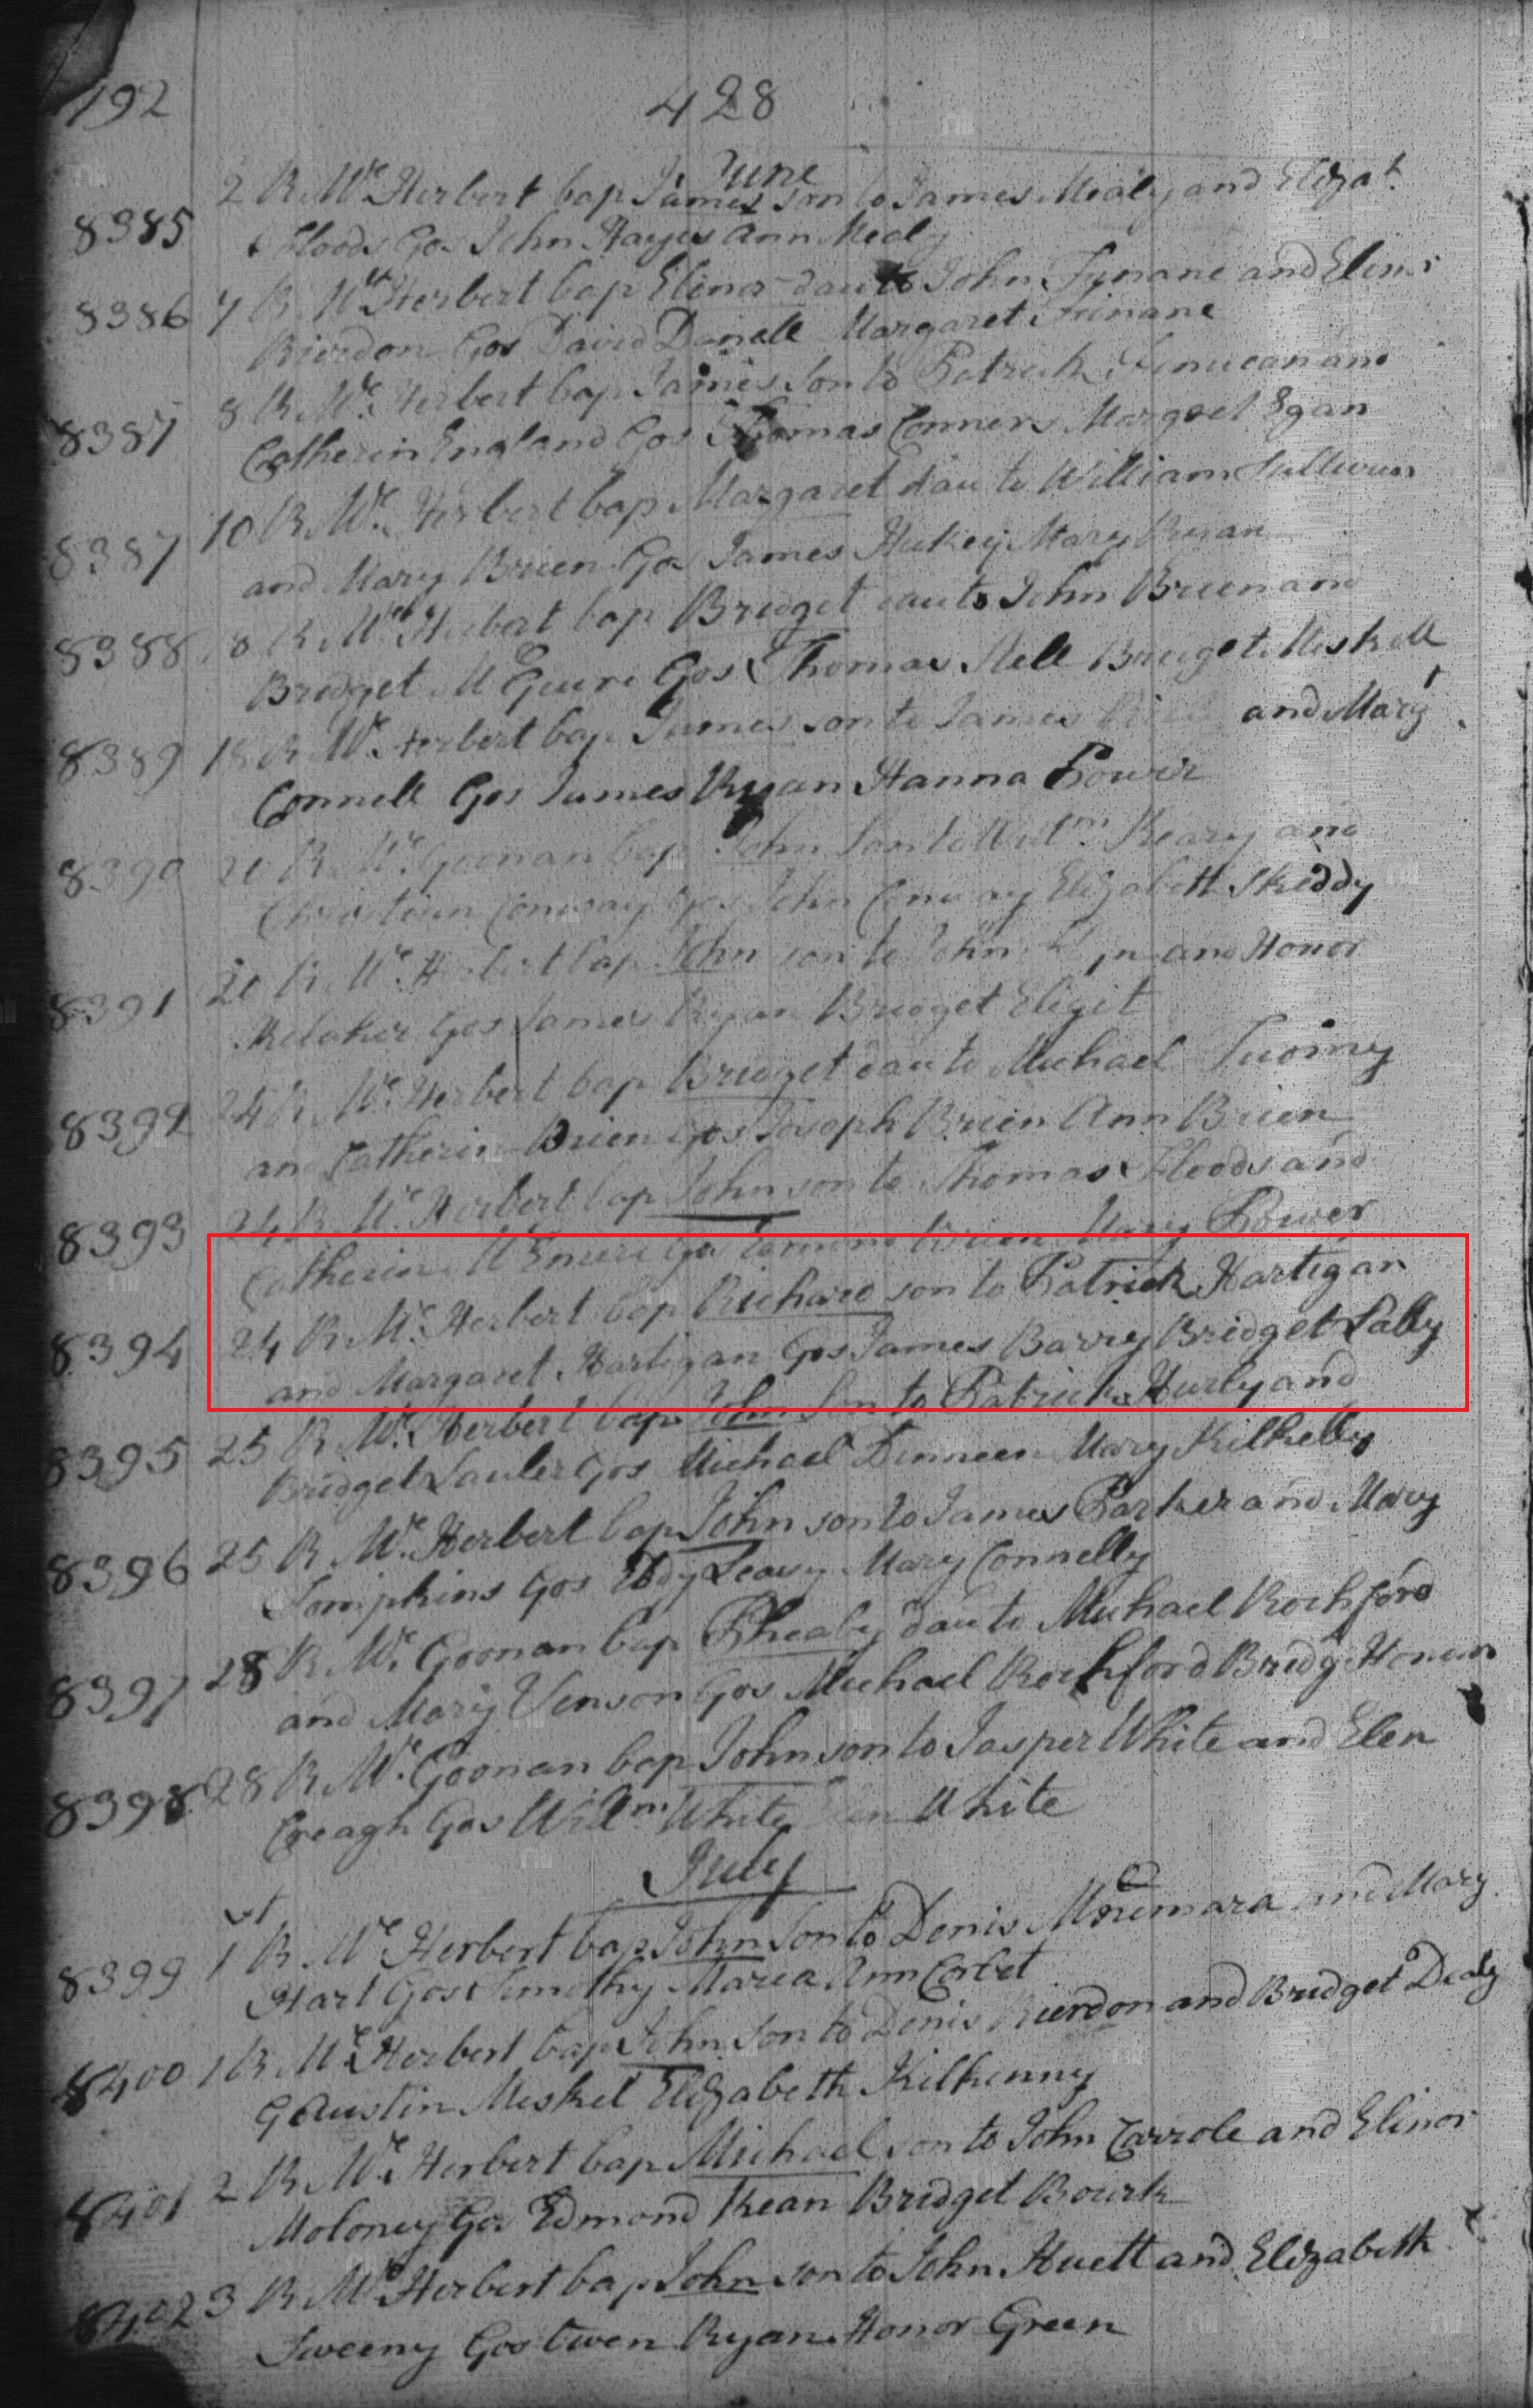 192 428
June
2 R Mr Herbert bap James son to James Mealy and Elizat
8385 Floods Gos John Hayes Ann Mealy
8386 7 R Mr Herbert bap Elinor dau to John Funane and Elinor
Rierdon Gos David Danell Margaret Finane
8 R Mr Herbert bap James son to Patrick Finucan and
8387 Catherin England Gos Thomas Conners Margret Egan
10 R Mr Herbert bap Margaret dau to William Sullivan
8387 and Mary Brien Gos James Hickey Mary Ryan
8388 8 R Mr Herbert bap Bridget dau to John Brien and
Bridget McGuire Gos Thomas Nell Bridget Miskell
8389 18 R Mr Herbert bap James son to James and Mary
Connell Gos James Ryan Hanna Power
8390 20 R Mr Goonan bap John son to Willm Keary and
Conway Gos John Conway Elizabeth Skiddy
8391 20 R Mr Herbert bap John son to John and Honor
Kelaher Gos James Ryan Bridget Eligit
8392 24 R Mr Herbert bap Bridget dau to Michael Tuomy
and Catherin Brien Gos Joseph Brien Ann Brien
8393 24 R Mr Herbert bap John son to Thomas Floods and
Catherin Gos Brien Mary Power
8394 24 R Mr Herbert bap Richard son to Patrick Hartigan
and Margaret Hartigan Gos James Barry Bridget Lally
8395 25 R Mr Herbert bap John son to Patrick Hurly and
Bridget Lauler Gos Michael Dinneen Mary Kilkelly
8396 25 R Mr Herbert bap John son to James Parker and Mary
Tompkins Gos Leavy Mary Connelly
8397 28 R Mr Goonan bap Pheaby dau to Michael Rochford
and Mary Venson Gos Michael Rochford Bridg Honan
8398 28 R Mr Goonan bap John son to Jasper White and Elen
Creagh Gos Willm White Elen White
July
8399 1st R Mr Herbert bap John son to Denis McNemara and Mary
Hart Gos Timothy Marea Ann Corbet
8400 1 R Mr Herbert bap John son to Denis Rierdon and Bridget Dealy
G Austin Meskel Elizabeth Kilkenny
8401 2 R Mr Herbert bap Michael son to John Carrole and Elinor
Moloney Gos Edmond Kean Bridget Bourk
8402 3 R Mr Herbert bap John son to John Huett and Elizabeth
Sweeny Gos Owen Ryan Honor Green